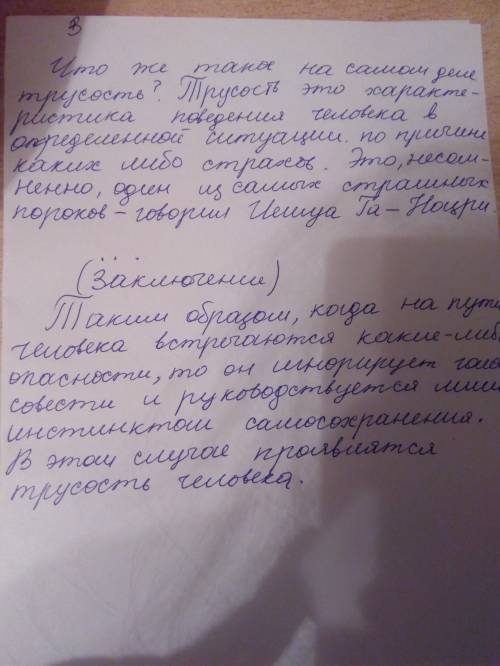 3
Что же такое на самом деле
трусость? Трусость это характе-
ристика поведения человека в
определенной ситуации по причине
каких либо страхов. Это, несом-
ненно, один из самых страшных
пороков - говорил Иешуа Га-Ноцри
...
(Заключение)
Таким образом, когда на пути
человека встречаются какие-либ
опасности, то он игнорирует голо
совести и руководствуется лиш
инстинктом самосохранения.
В этом случае проявлятся
трусость человека.